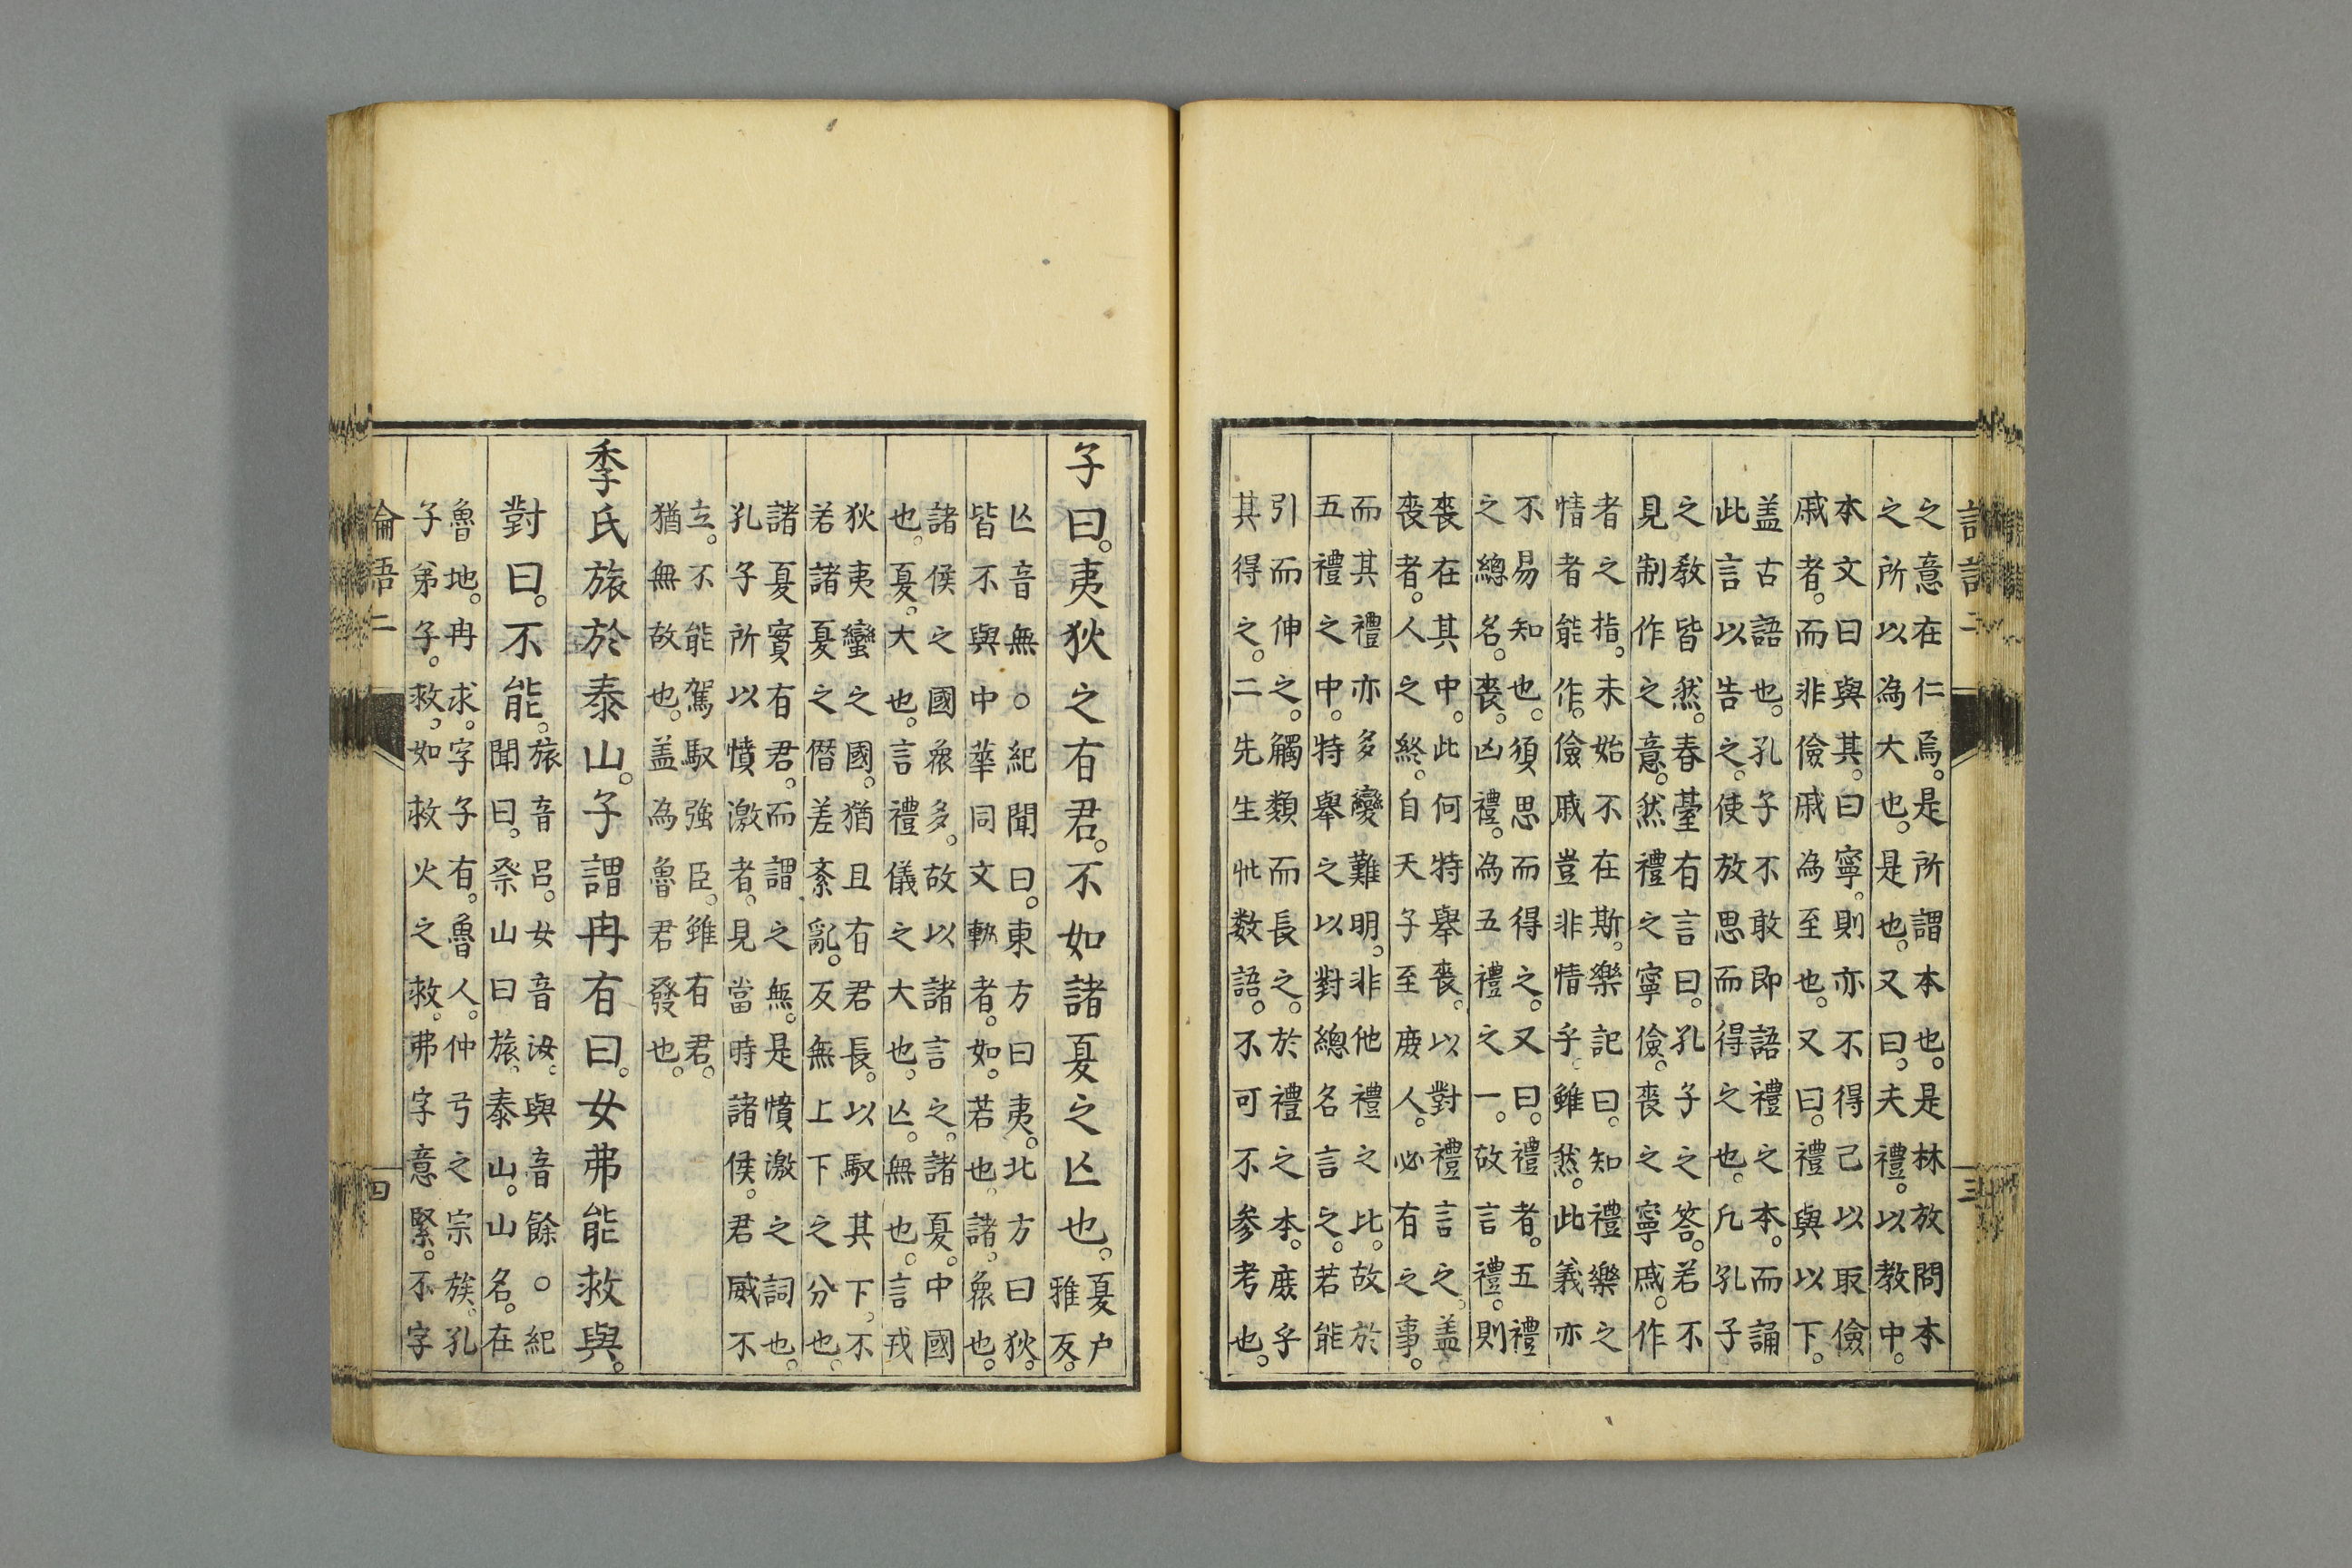 之意在仁焉。是所謂本也。是林放問本
之所以為大也。是也。又曰。夫禮。以教中。
本文曰與其。曰寧。則亦不得己以取儉
戚者。而非儉戚為至也。又曰。禮與以下。
盖古語也。孔子不敢即語禮之本。而誦
此言以告之。使放思而得之也。凡孔子
之教皆然。春臺有言曰。孔子之答。若不
見制作之意。然禮之寧儉。喪之寧戚。作
者之指。未始不在斯。樂記曰。知禮樂之
情者能作。儉戚豈非情乎。雖然。此義亦
不易知也。須思而得之。又曰。禮者。五禮
之總名。喪。凶禮。為五禮之一。故言禮。則
喪在其中。此何特舉喪。以對禮言之。盖
喪者。人之終。自天子至庶人。必有之事。
而其禮亦多變難明。非他禮之比。故於
五禮之中。特舉之以對總名言之。若能
引而伸之。觸類而長之。於禮之本。庶乎
其得之。二先生此数語。不可不參考也。
子曰。夷狄之有君。不如諸夏之亾也。夏户
雅反。
亾音無。○紀聞曰。東方曰夷。北方曰狄。
皆不與中華同文軌者。如。若也。諸。衆也。
諸侯之國衆多。故以諸言之。諸夏。中國
也。夏。大也。言禮儀之大也。亾。無也。言戎
狄夷蠻之國。猶且有君長。以馭其下。不
若諸夏之僭差紊亂。反無上下之分也。
諸夏實有君。而謂之無。是憤激之詞也。
孔子所以憤激者。見當時諸侯。君威不
立。不能駕馭強臣。雖有君。
猶無故也。盖為魯君發也。
季氏旅於泰山。子謂冉有曰。女弗能救與。
對曰。不能。旅音呂。女音汝。與音餘。○紀
聞曰。祭山曰旅。泰山。山名。在
魯地。冉求。字子有。魯人。仲弓之宗族。孔
子弟子。救。如救火之救。弗字意緊。不字
論語二 四